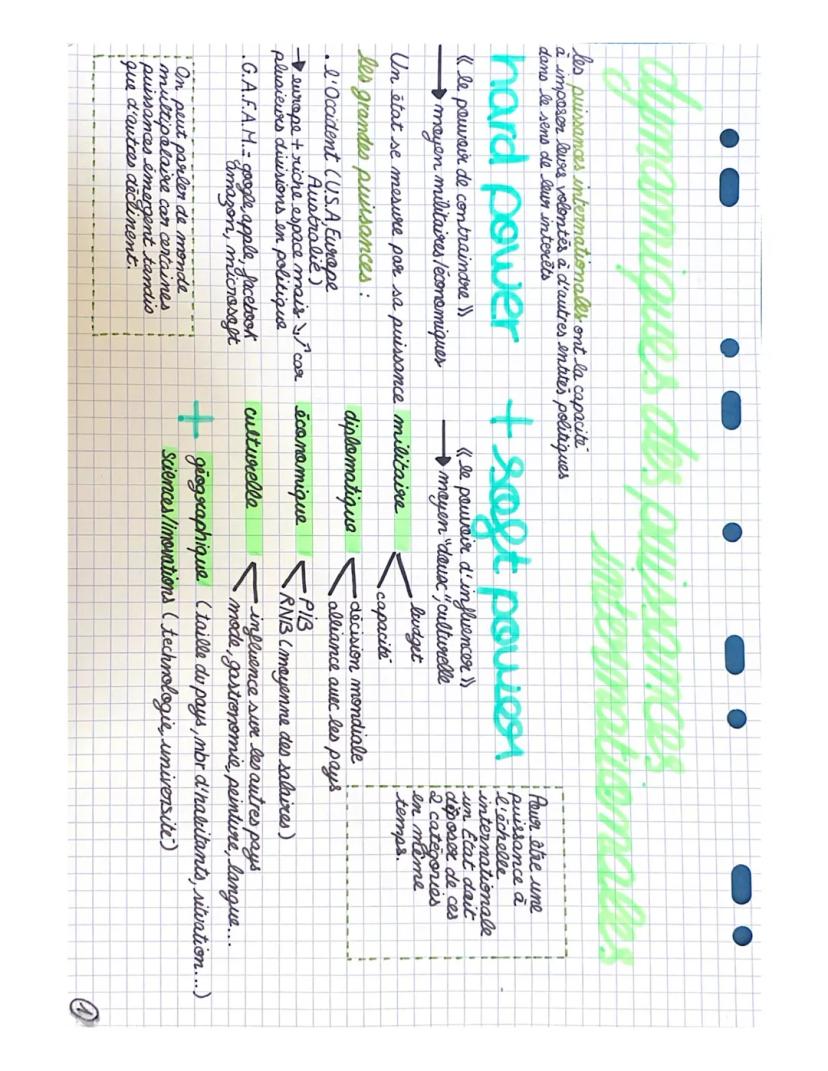 dynamiques des puissances
internationales
les puissances internationales ont la capacité
à imposer leurs volontés à d'autres entités politiques
dans le sens de leur intérêts
hard power + soft power
« le pouvoir de contraindre »
→ moyen militaires/économiques
« le pouvoir d'influencer »
→ moyen "doux", culturelle
Pour être une
puissance à
l'échelle
internationale
un État doit
déposer de ces
2 catégories
en même
temps.
Un état se mesure par sa puissance militaire
budget
capacité
diplomatique
décision mondiale
alliance avec les pays
économique
PIB
RNB (moyenne des salaires)
culturelle
influence sur les autres pays
mode, gastronomie, peinture, langue...
+ géographique (taille du pays, nbr d'habitants, situation...)
sciences/inovations (technologie, université)
les grandes puissances :
. l'Occident (U.S.A, Europe
Australie)
→ europe + riche espace mais ↘↗ car
plusieurs divisions en politique
. G.A.F.A.M. = google, apple, facebook
amazon, microsoft
On peut parler de monde
multipolaire car certaines
puissances émergent tandis
que d'autres déclinent.
1